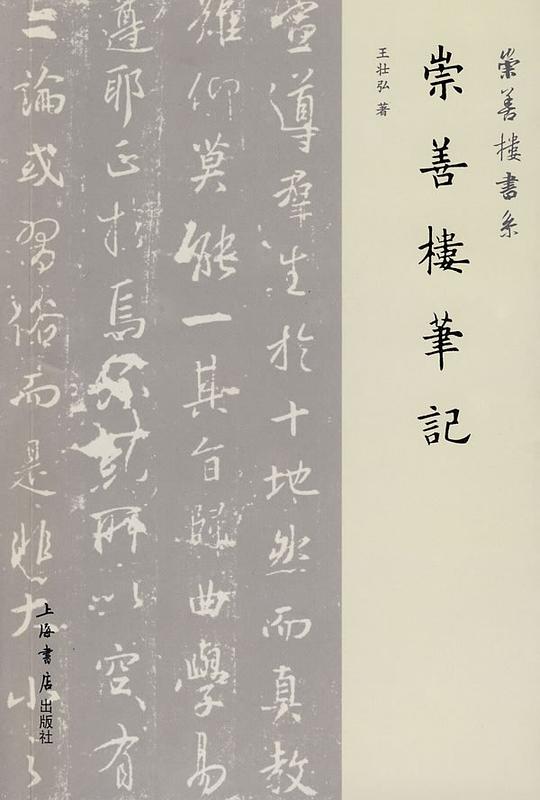 崇善樓書系
崇善樓筆記
王壮弘 著
宣導群生於十地然而真教
難仰莫能一其旨歸曲學易
遵耶正於焉紛糺所以空有
之論或習俗而是非大小之
上海書店出版社